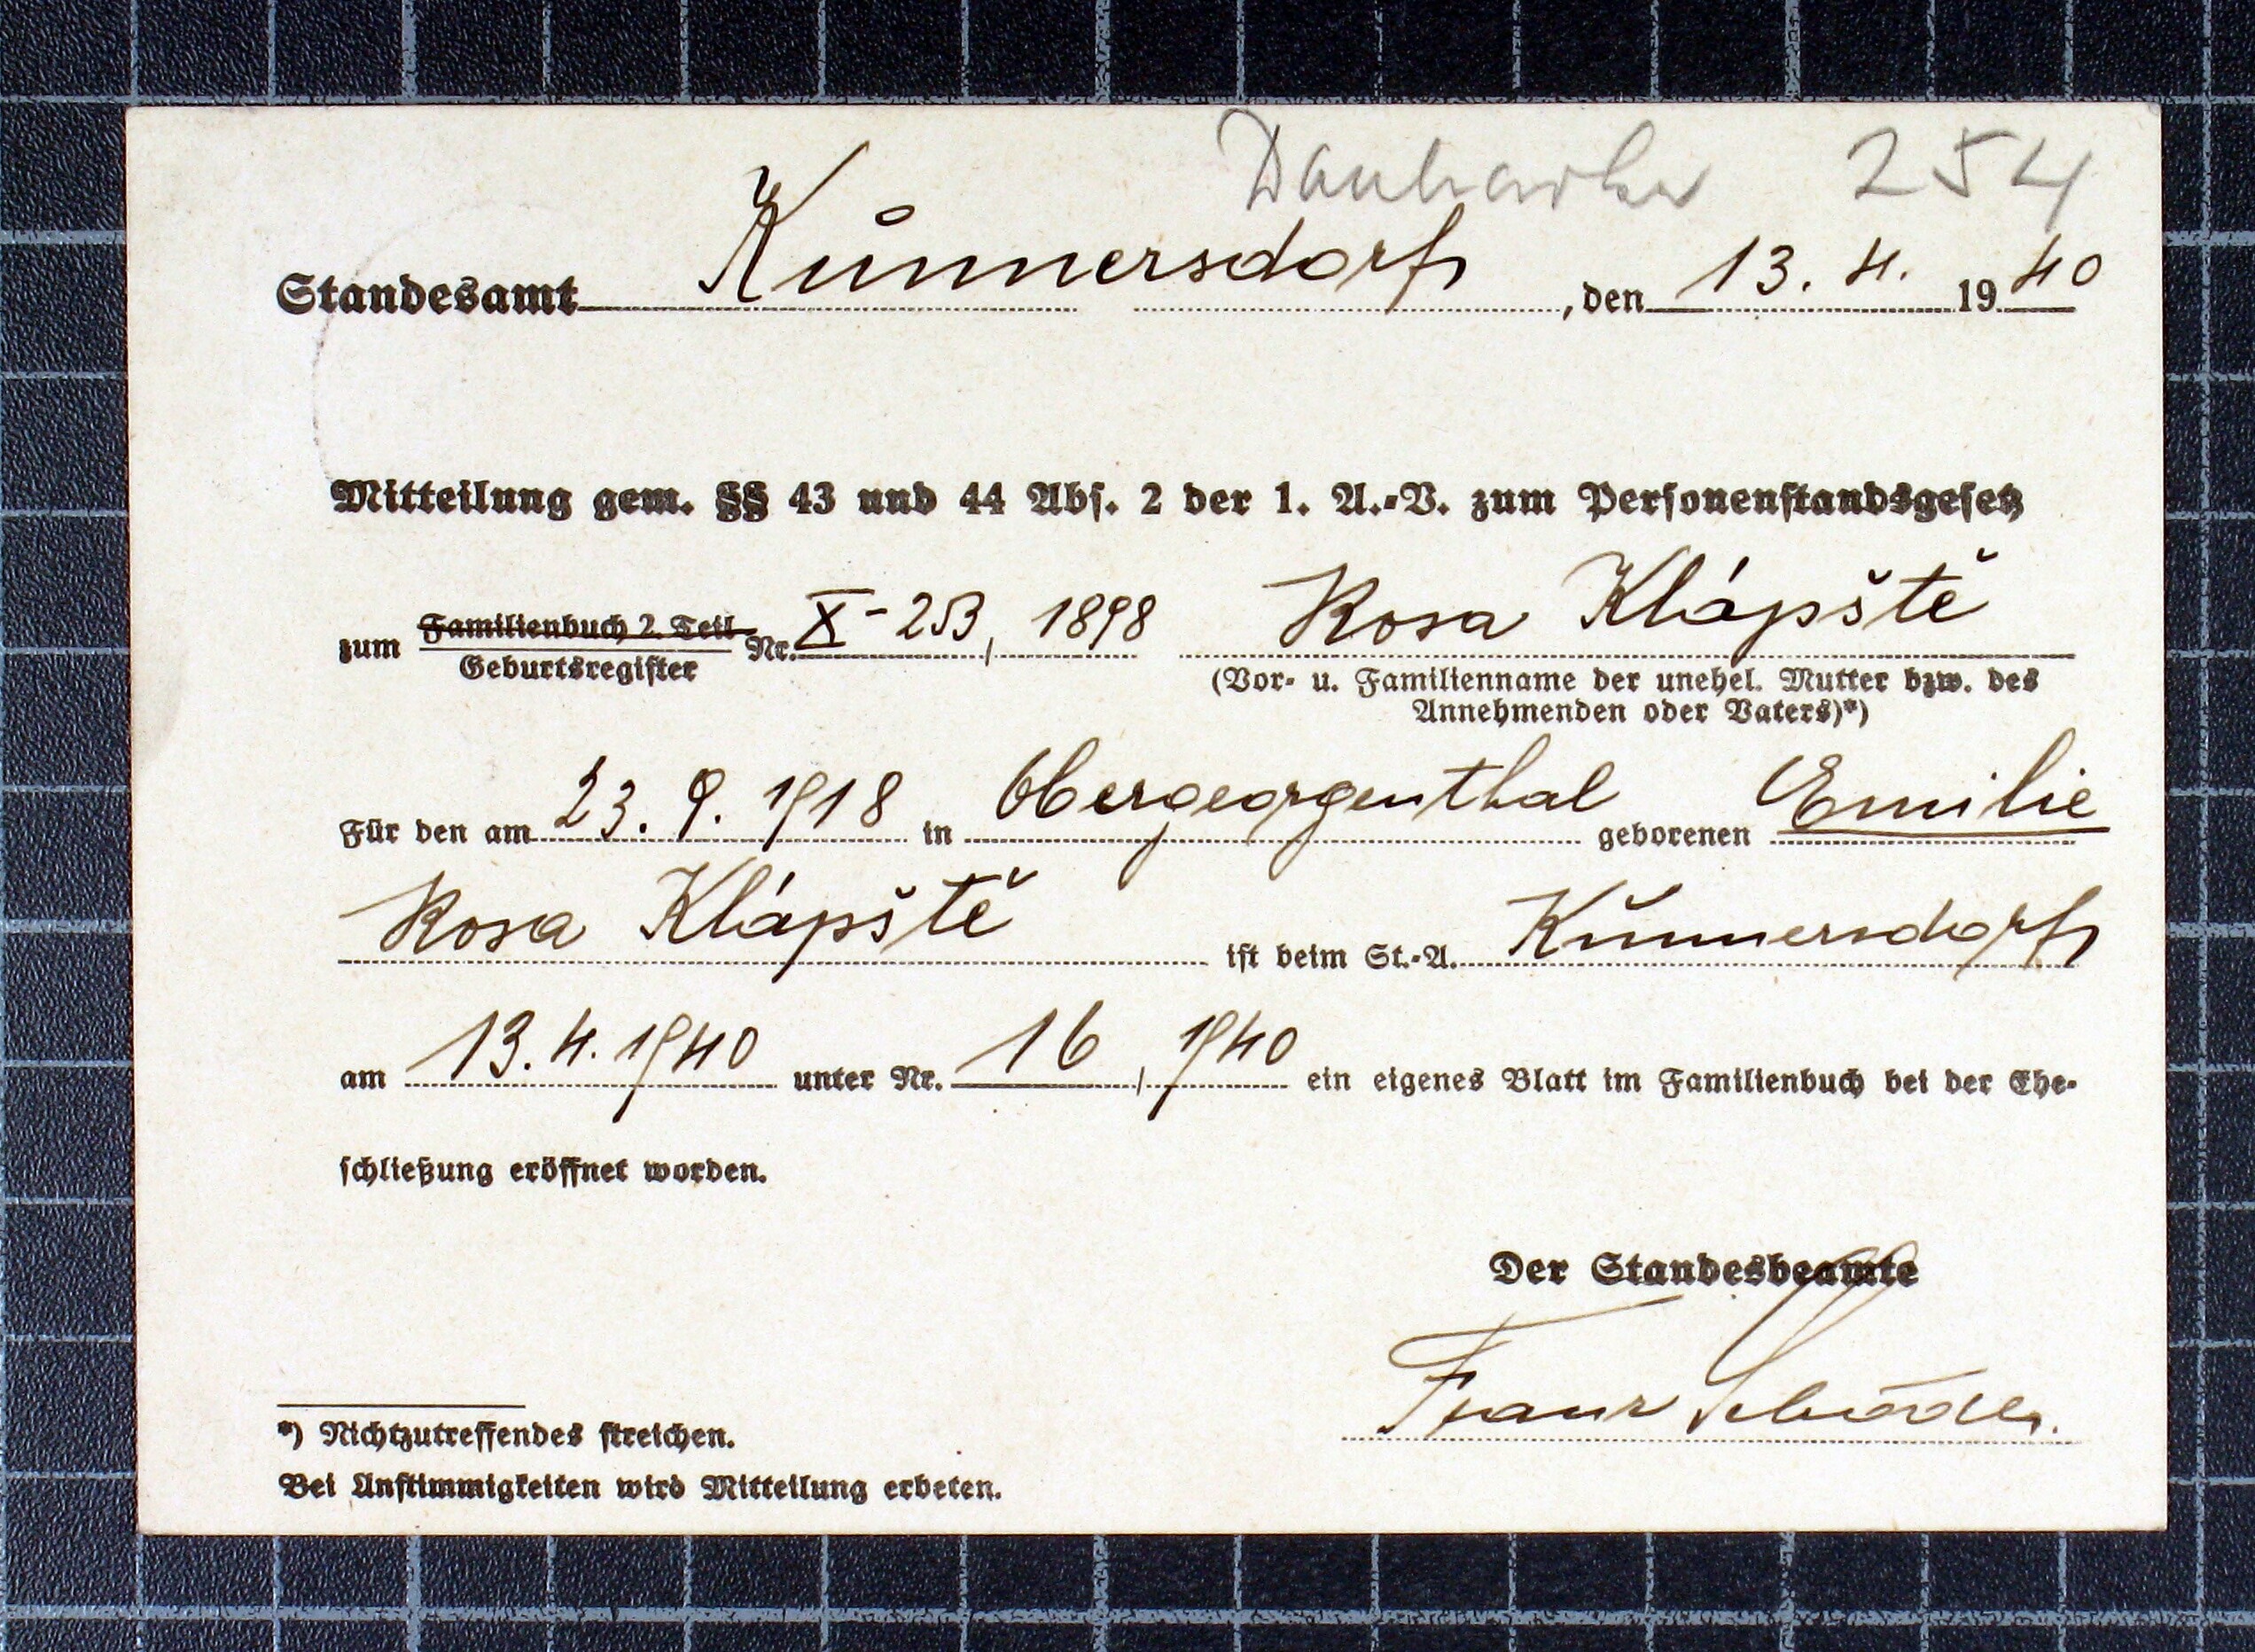 254
Standesamt Kunnersdorf, den 13. 4. 1940
Mitteilung gem. §§ 43 und 44 Abs. 2 der 1. A.-V. zum Personenstandsgesetz
zum Familienbuch 2. Teil Nr. X-253, 1898 Rosa Klápště
Geburtsregister
(Vor- u. Familienname der unehel. Mutter bzw. des
Annehmenden oder Vaters)*)
Für den am 23. 9. 1918 in Obergeorgenthal geborenen Emilie
Rosa Klápště ist beim St.-A. Kunnersdorf
am 13. 4. 1940 unter Nr. 16, 1940 ein eigenes Blatt im Familienbuch bei der Ehe-
schließung eröffnet worden.
Der Standesbeamte
Franz
*) Nichtzutreffendes streichen.
Bei Anstimmigkeiten wird Mitteilung erbeten.